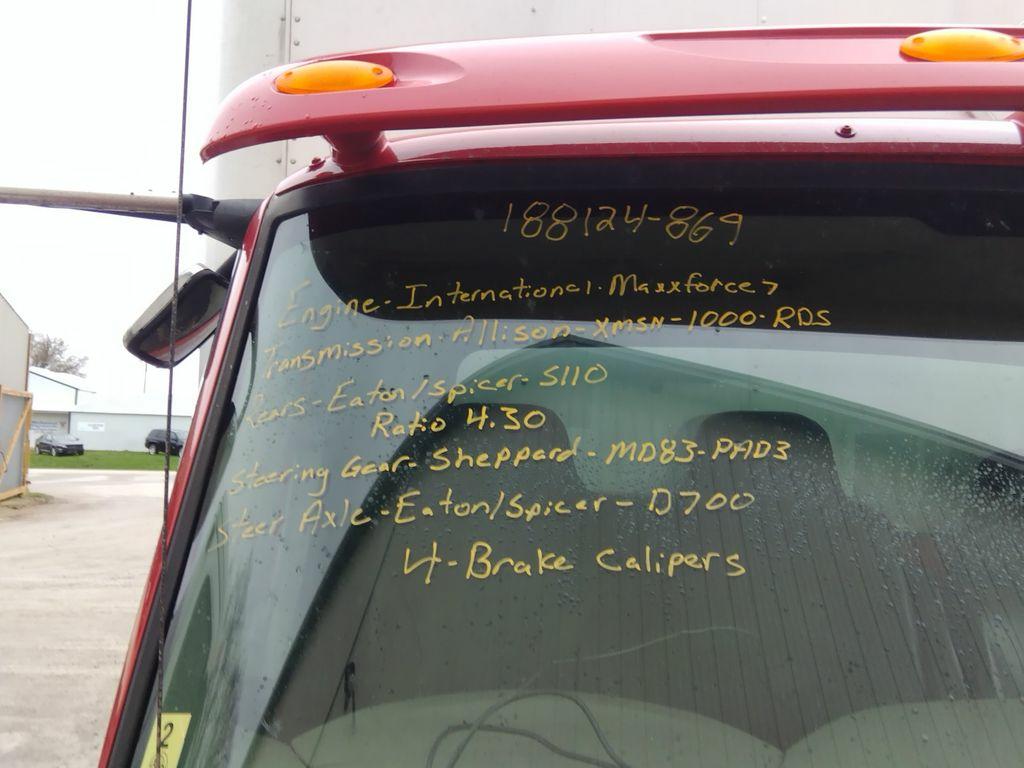 188124-869
Engine-International-Maxxforce 7
Transmission-Allison-XMSN-1000-RDS
Rears-Eaton/Spicer-S110
Ratio 4.30
Steering Gear-Sheppard-MD83-PAD3
Steer Axle-Eaton/Spicer-D700
4-Brake Calipers
2